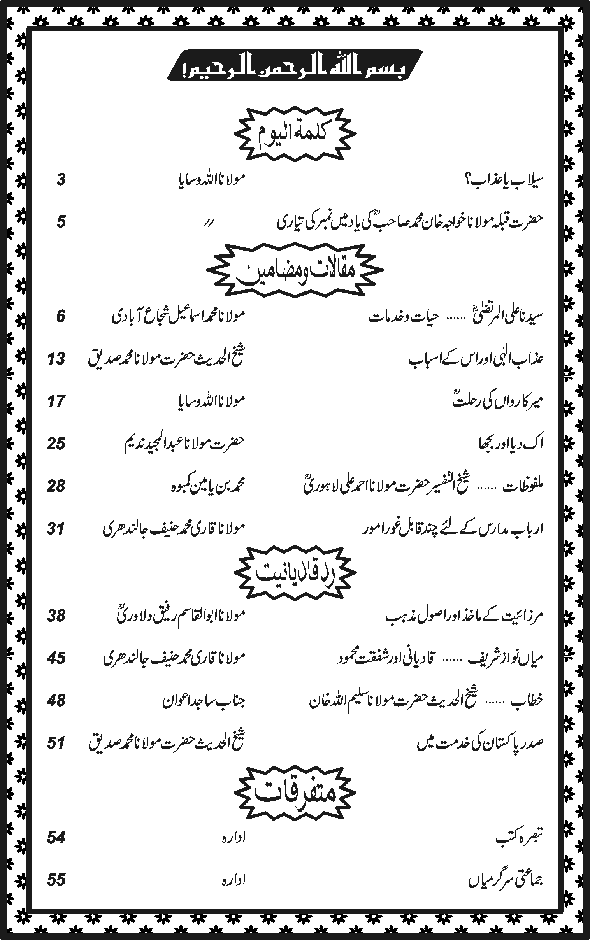 بسم اللہ الرحمن الرحیم!
کلمة الیوم
سیلاب یا عذاب؟ مولانا اللہ وسایا 3
حضرت قبلہ مولانا خواجہ خان محمد صاحبؒ کی یاد میں نمبر کی تیاری // 5
مقالات و مضامین
سیدنا علی المرتضیٰؓ ...... حیات و خدمات مولانا محمد اسماعیل شجاع آبادی 6
عذاب الٰہی اور اس کے اسباب شیخ الحدیث حضرت مولانا محمد صدیق 13
میر کارواں کی رحلتؒ مولانا اللہ وسایا 17
اک دیا اور بجھا حضرت مولانا عبدالمجید ندیم 25
ملفوظات ...... شیخ التفسیر حضرت مولانا احمد علی لاہوریؒ محمد بن یامین کمبوہ 28
ارباب مدارس کے لئے چند قابل غور امور مولانا قاری محمد حنیف جالندھری 31
رد قادیانیت
مرزائیت کے ماخذ اور اصول مذہب مولانا ابوالقاسم رفیق دلاوریؒ 38
میاں نواز شریف ...... قادیانی اور شفقت محمود مولانا قاری محمد حنیف جالندھری 45
خطاب ...... شیخ الحدیث حضرت مولانا سلیم اللہ خان جناب ساجد اعوان 48
صدر پاکستان کی خدمت میں شیخ الحدیث حضرت مولانا محمد صدیق 51
متفرقات
تبصرہ کتب ادارہ 54
جماعتی سرگرمیاں ادارہ 55